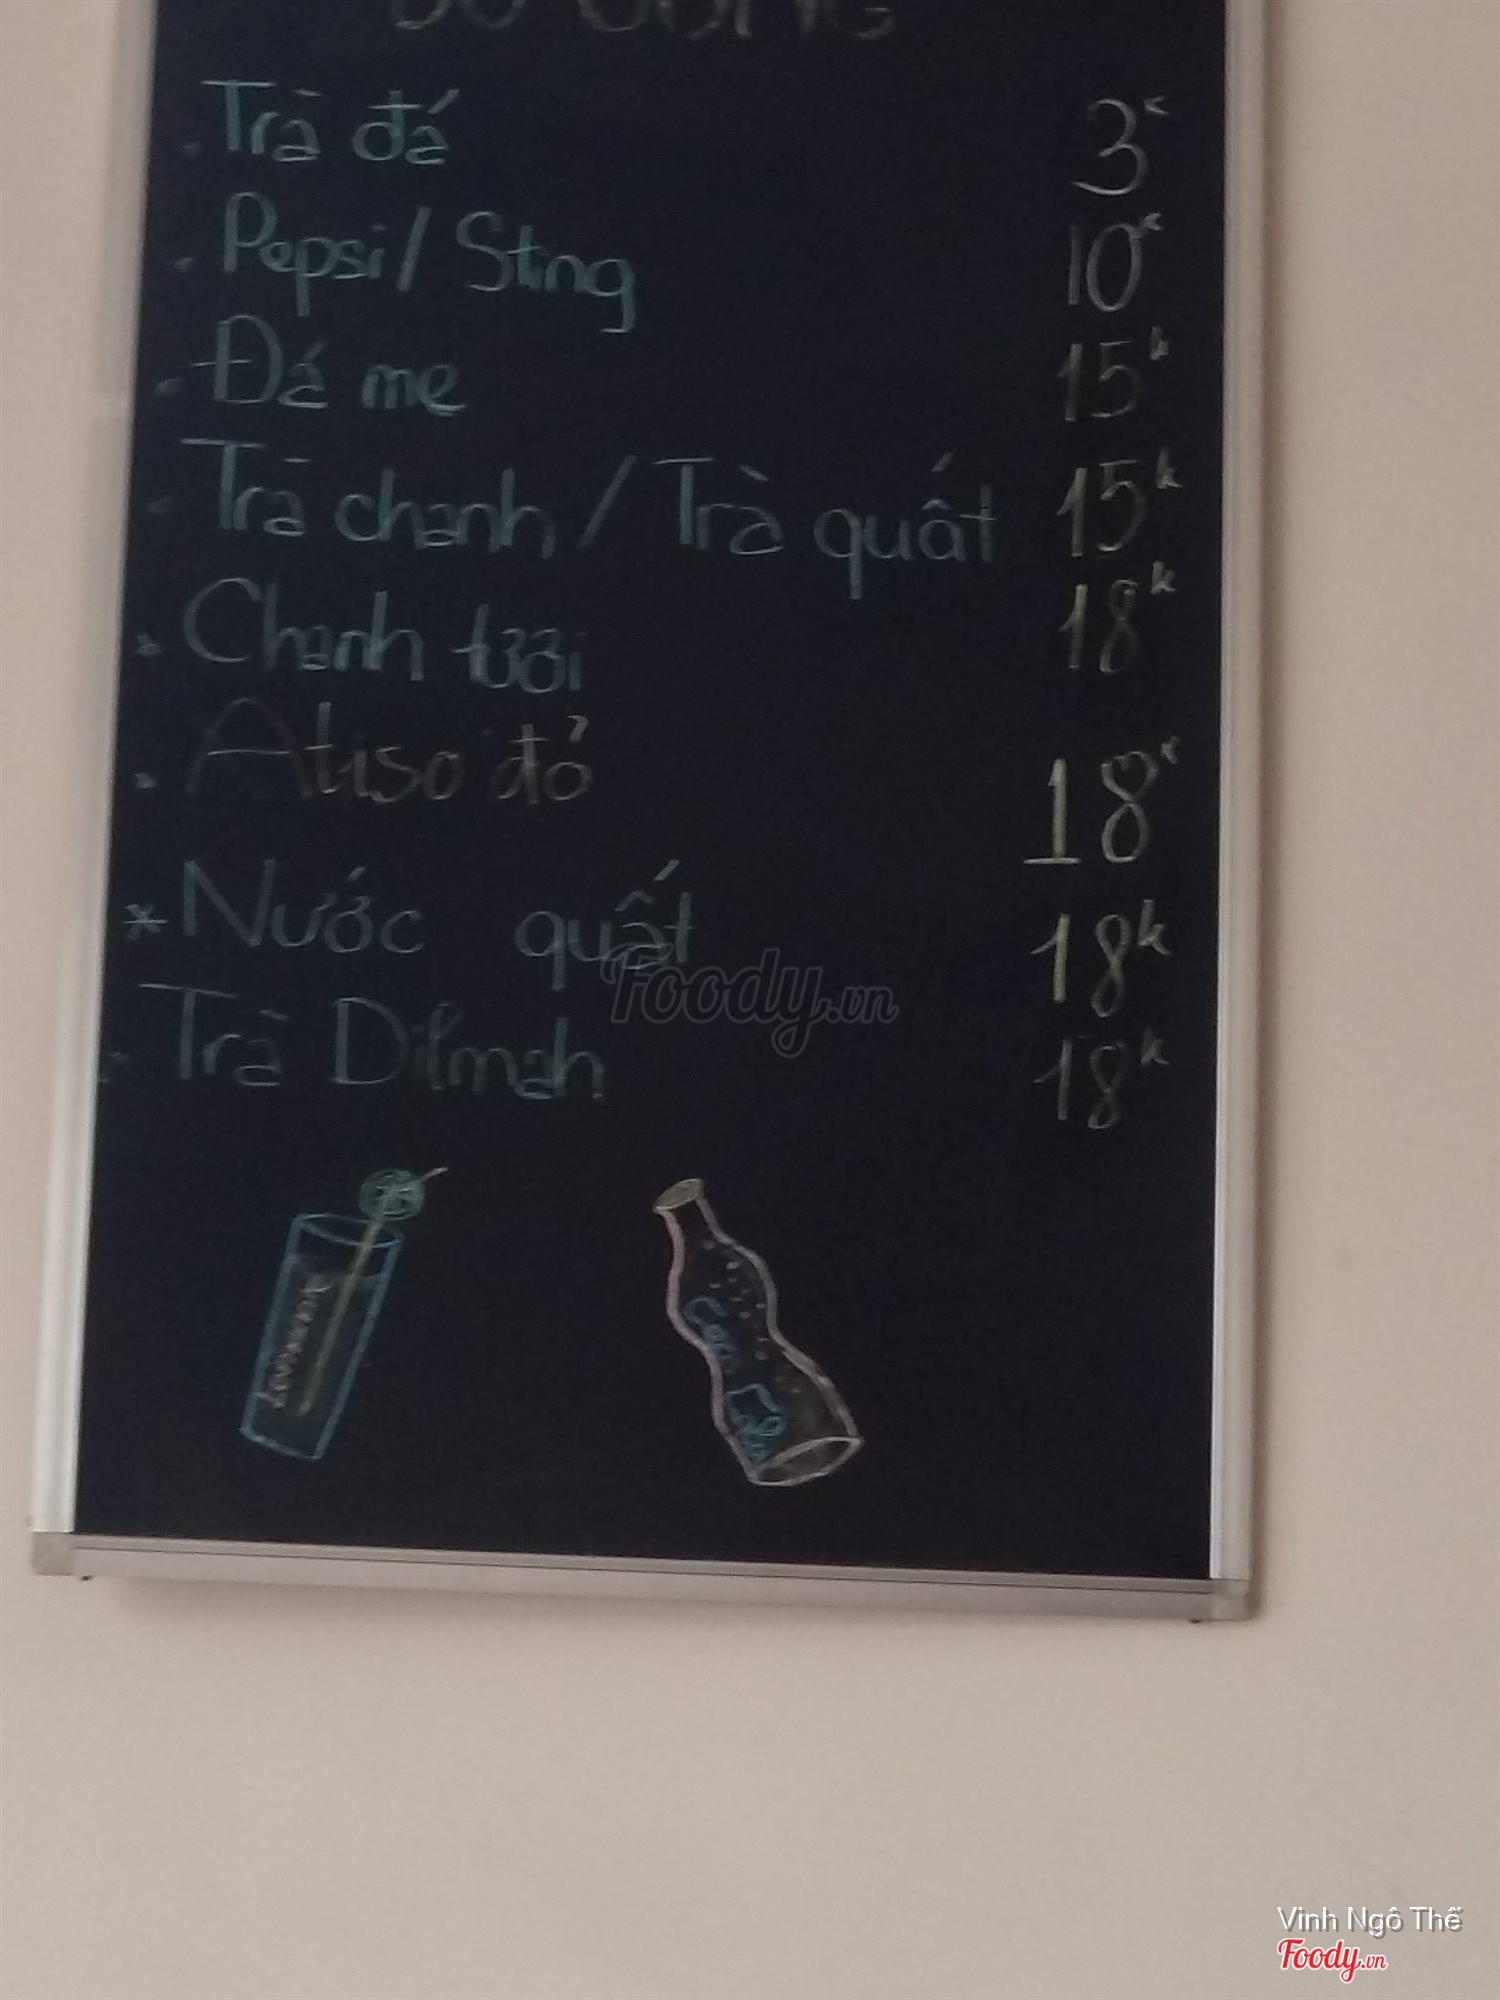 ĐỒ UỐNG
Trà đá 3k
Pepsi/Sting 10k
Đá me 15k
Trà chanh / Trà quất 15k
Chanh tươi 18k
Atiso đỏ 18k
* Nước quất 18k
Trà Dilmah 18k
Foody.vn
Vinh Ngô Thế
Foody.vn